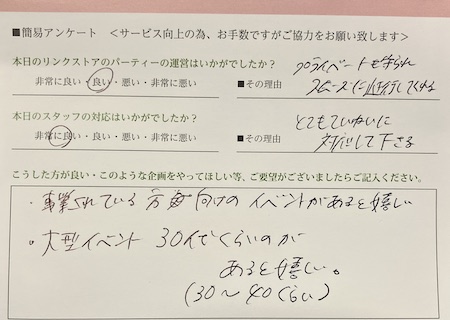 ■簡易アンケート <サービス向上の為、お手数ですがご協力をお願い致します>
本日のリンクストアのパーティーの運営はいかがでしたか?
非常に良い・良い・悪い・非常に悪い
■その理由
プライベートも守られ
スムーズに進行してくれる
本日のスタッフの対応はいかがでしたか?
非常に良い・良い・悪い・非常に悪い
■その理由
とてもていねいに
対応して下さる
こうした方が良い・このような企画をやってほしい等、ご要望がございましたらご記入ください。
・事業されている方向けのイベントがあると嬉しい
・大型イベント 30人くらいのが
あると嬉しい。
(30〜40くらい)